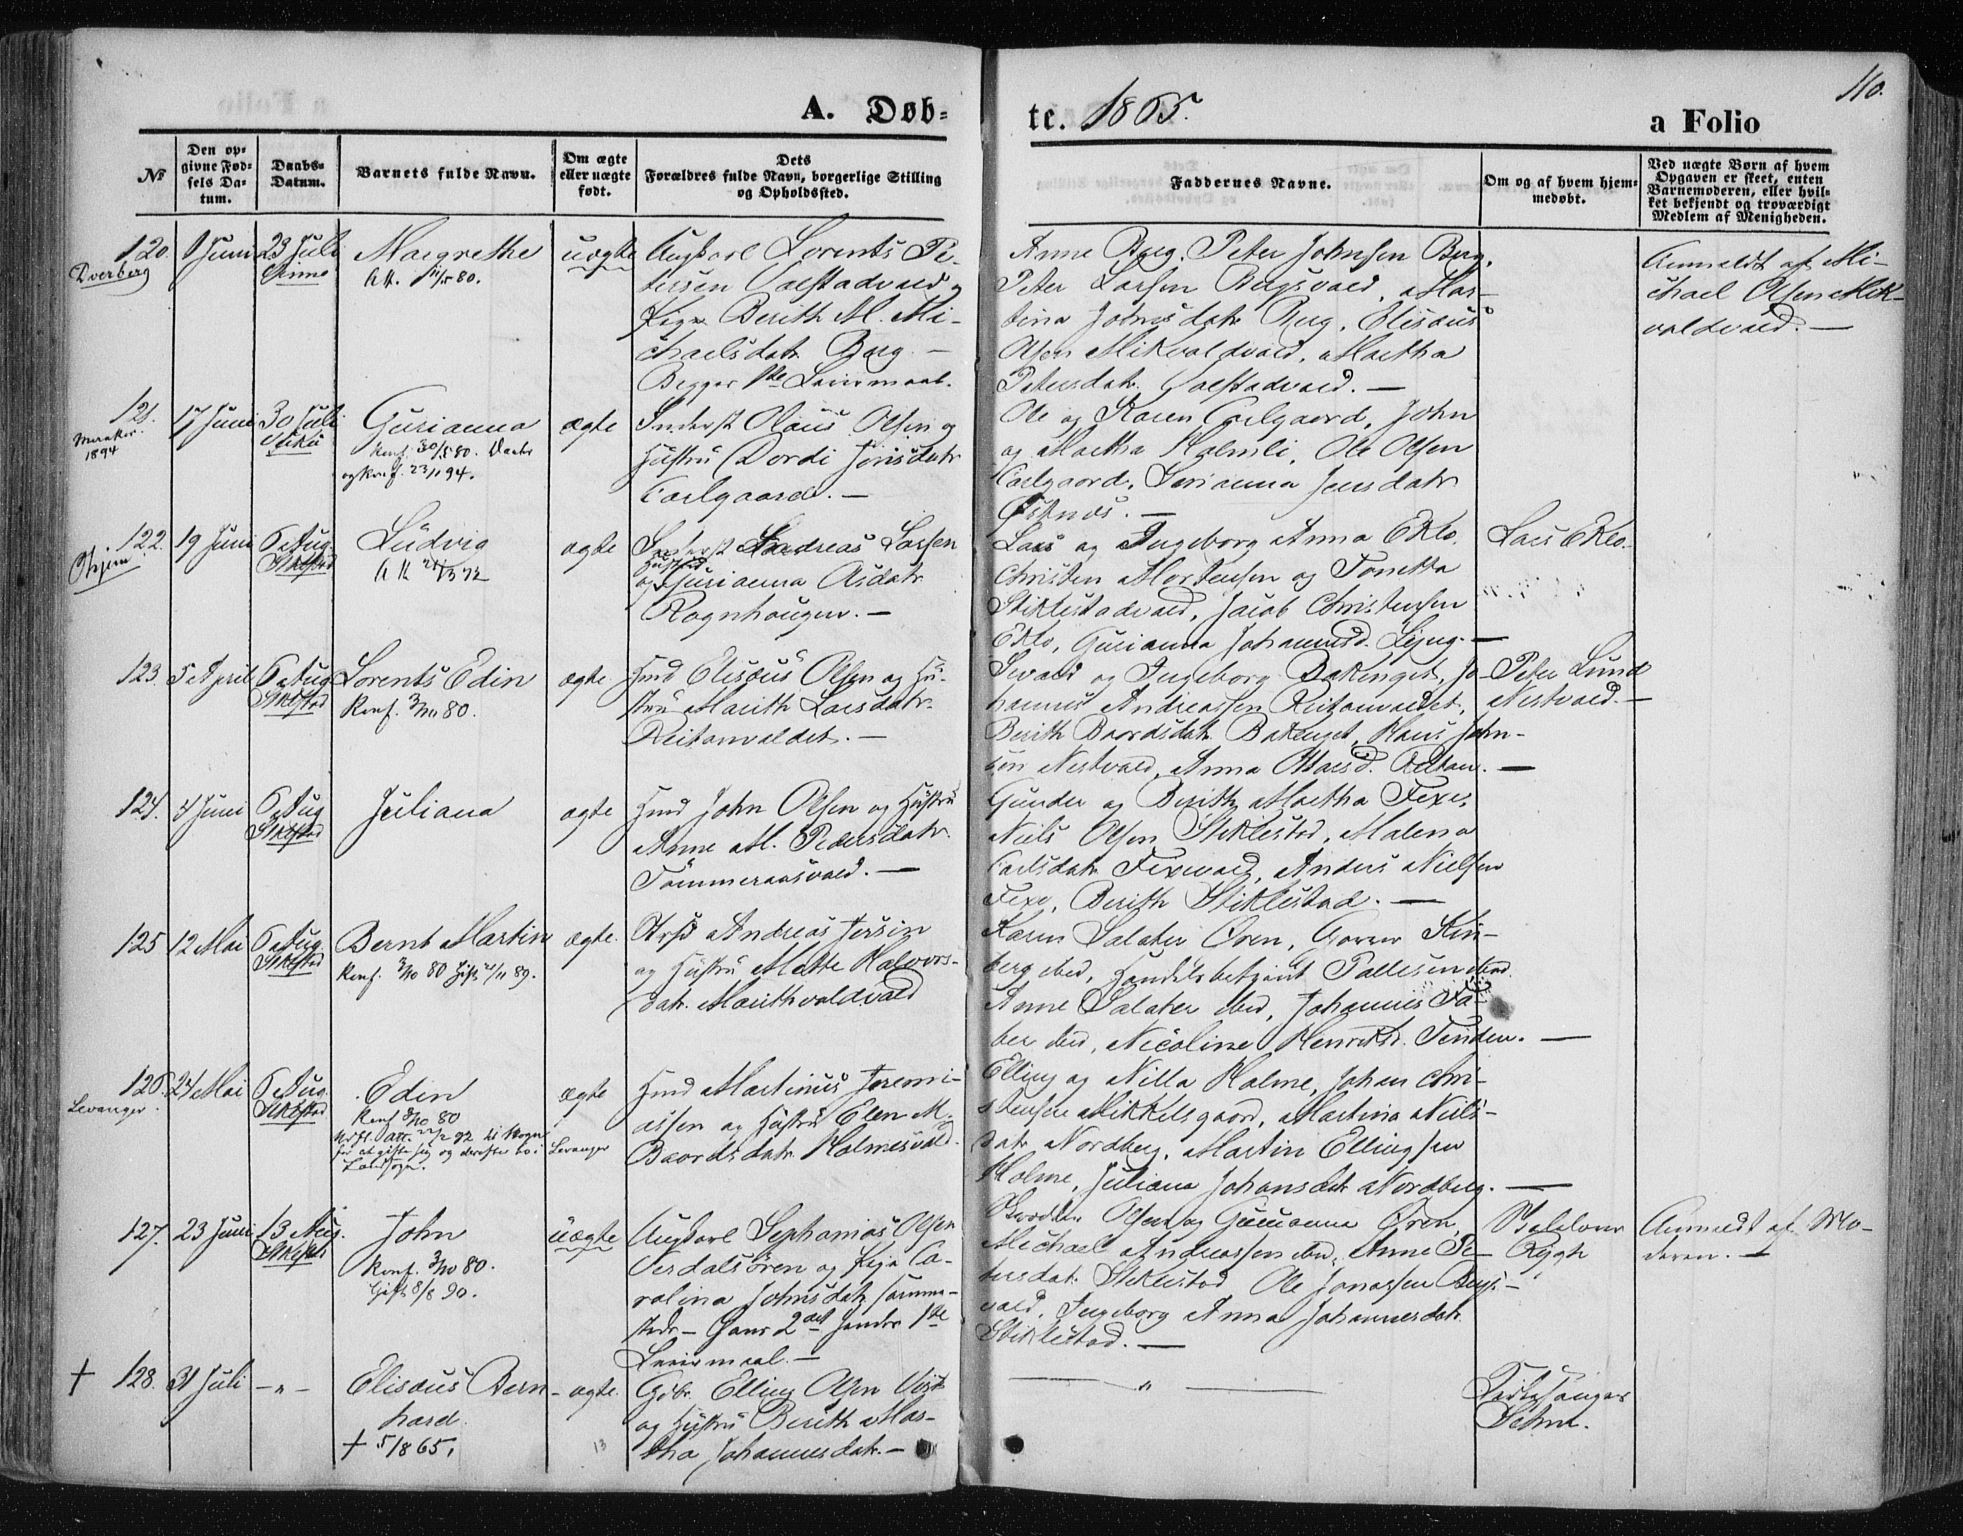 110.
A. Døb-
te. 1865.
a Folio
№
Den op-
givne Fød-
sels Da-
tum.
Daabs-
Datum.
Barnets fulde Navn.
Om ægte
eller uægte
født.
Dets
Forældres fulde Navn, borgerlige Stilling
og Opholdssted.
Faddernes Navne.
Om og af hvem hjem-
medøbt.
Ved uægte Børn af hvem
Opgaven er skeet, enten
Barnemoderen, eller hvil-
ket bekjendt og troværdigt
Medlem af Menigheden.
120.
Dverberg
Juni
23 Juli
Vinne
Margrethe
uægte
Ungkarl Lorents Pe-
tersen Valstadvald og
Pige Berith M. Mi-
chaelsdatr Berg. —
Begges 1ste Leiermaal.
Anne Berg, Peter Johnsen Berg,
Peter Larsen Bergsvald, Mar-
tina Johnsdatr Berg, Elisæus
Olsen Mikvoldvald, Martha
Petersdatr. Valstadvald. —
Anmeldt af Mi-
chael Olsen Mik-
voldvald. —
121.
Meraker
1894
17 Juni
30 Juli
Gurianna
og konf. 23/1 94.
ægte
Inderst Olaus Olsen og
Hustru Dordi Jonsdatr
Carlgaard. —
Ole og Karen Carlgaard, John
og Martha Holmli, Ole Olsen
Carlgaard, Gurianna Jensdatr
122.
19 Juni
6 Aug.
Stklstad
Ludvig
ægte
Inderst Andreas Larsen
Hustru
og Gurianna Asdatr
Rognhaugen. —
Lars og Ingeborg Anna Eklo,
Christen Mortensen og Tonetta
Stiklestadvald, Jacob Christensen
Eklo, Gurianna Johannesd. —
Lars Eklo.
123.
5 April
6 Aug
Stklstad
Lorents Edin
Konf. 3/10 80.
ægte
Hmd Elisæus Olsen og Hu-
stru Marith Larsdatr
Reitanvaldet. —
Sevald og Ingeborg Bakenget, Jo-
hannes Andreassen Reitanvaldet,
Berith Baardsdatr Bakenget, Hans John-
sen Nestvald, Anna Reitan. —
Peter Lund
Nestvald. —
124.
4 Juni
6 Aug
Stklstad
Juliana
ægte
Hmd John Olsen og Hustru
Anne M. Pedersdatr
Tømmeraasvald. —
Gunder og Berith Martha Fexe,
Niels Olsen Stiklestad, Malena
Carlsdatr Fexevald, Anders Nielsen
Fexe, Berith Stiklestad. —
125
12 Mai
6 Aug.
Stklstad
Bernt Martin
Konf. 3/10 80 Gift 89.
ægte.
Andreas
og Hustru Mette Halvors-
datr. Marithvoldvald
Karen Salater Øren,
berg ibid, Handelsbetjent Pallesen ibid.
Anne Salater ibid, Johannes Fa-
ber ibid, Nicoline Henriksd. —
126.
Levanger.
24 Mai
6 Aug.
Stklstad
Edin
Konf 3/10 80
ægte
Levanger
Hmd Martinus Jeremi-
assen og Hustru Elen M.
Baardsdatr Holmesvald.
Elling og Nilla Holme, Johan Chri-
stensen Mikkelsgaard, Martina Niels-
datr Nordberg, Martin Ellingsen
Holme, Juliana Johansdatr Nordberg. —
127.
23 Juni
13 Aug.
John
Konf. 3/10 80.
Gift 8/8 90.
uægte
Ungkarl Sephanias Olsen
Verdalsøren og Pige Ca-
rolina Johnsdatr samme-
steds — Hans 2det hendes 1ste
Leiermaal. —
Olsen og Gurianna Øren,
Michael Andreassen ibid, Anne Pe-
tersdatr. Stiklestad Ole Jonassen Bergs-
vald, Ingeborg Anna Johannesdatr.
Stiklestad. —
Baldover
Rygh
Anmeldt af Mo-
deren. —
+ 128.
31 Juli
— " —
Elisæus Bern-
hard.
+ 5/8 65.
ægte.
13
Gbr. Elling Olsen
og Hustru Berith Mar-
tha Johannesdatr. —
— " —
Kirkesanger